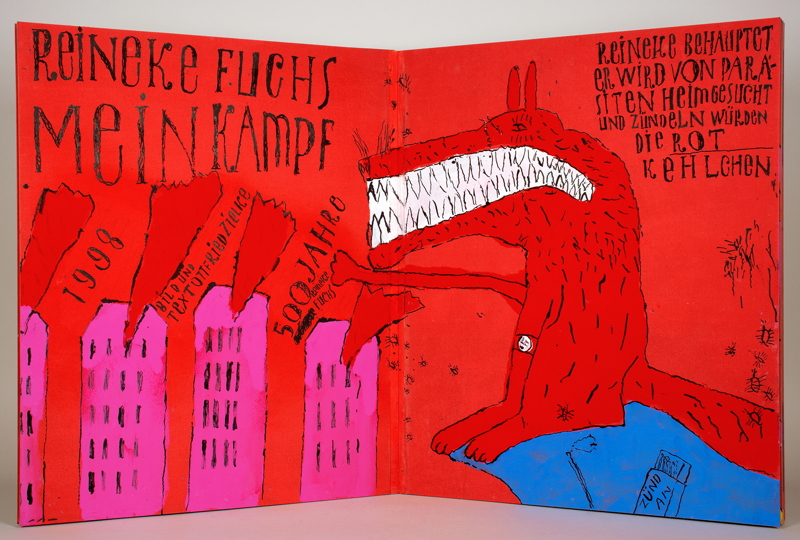 REiNEKE FUCHS
MEiN KAMPF
1998
BILD UND
TEXT OTTFRIED ZIELKE
500 JAHRE
REINEKE
FUCHS
REiNEKE BEHAUPTET
ER WIRD VON PARÄ-
SiTEN HEiMGESUCHT
UND ZÜNDELN WÜRDEN
DIE ROT
KEHLCHEN.
ZÜND
AN